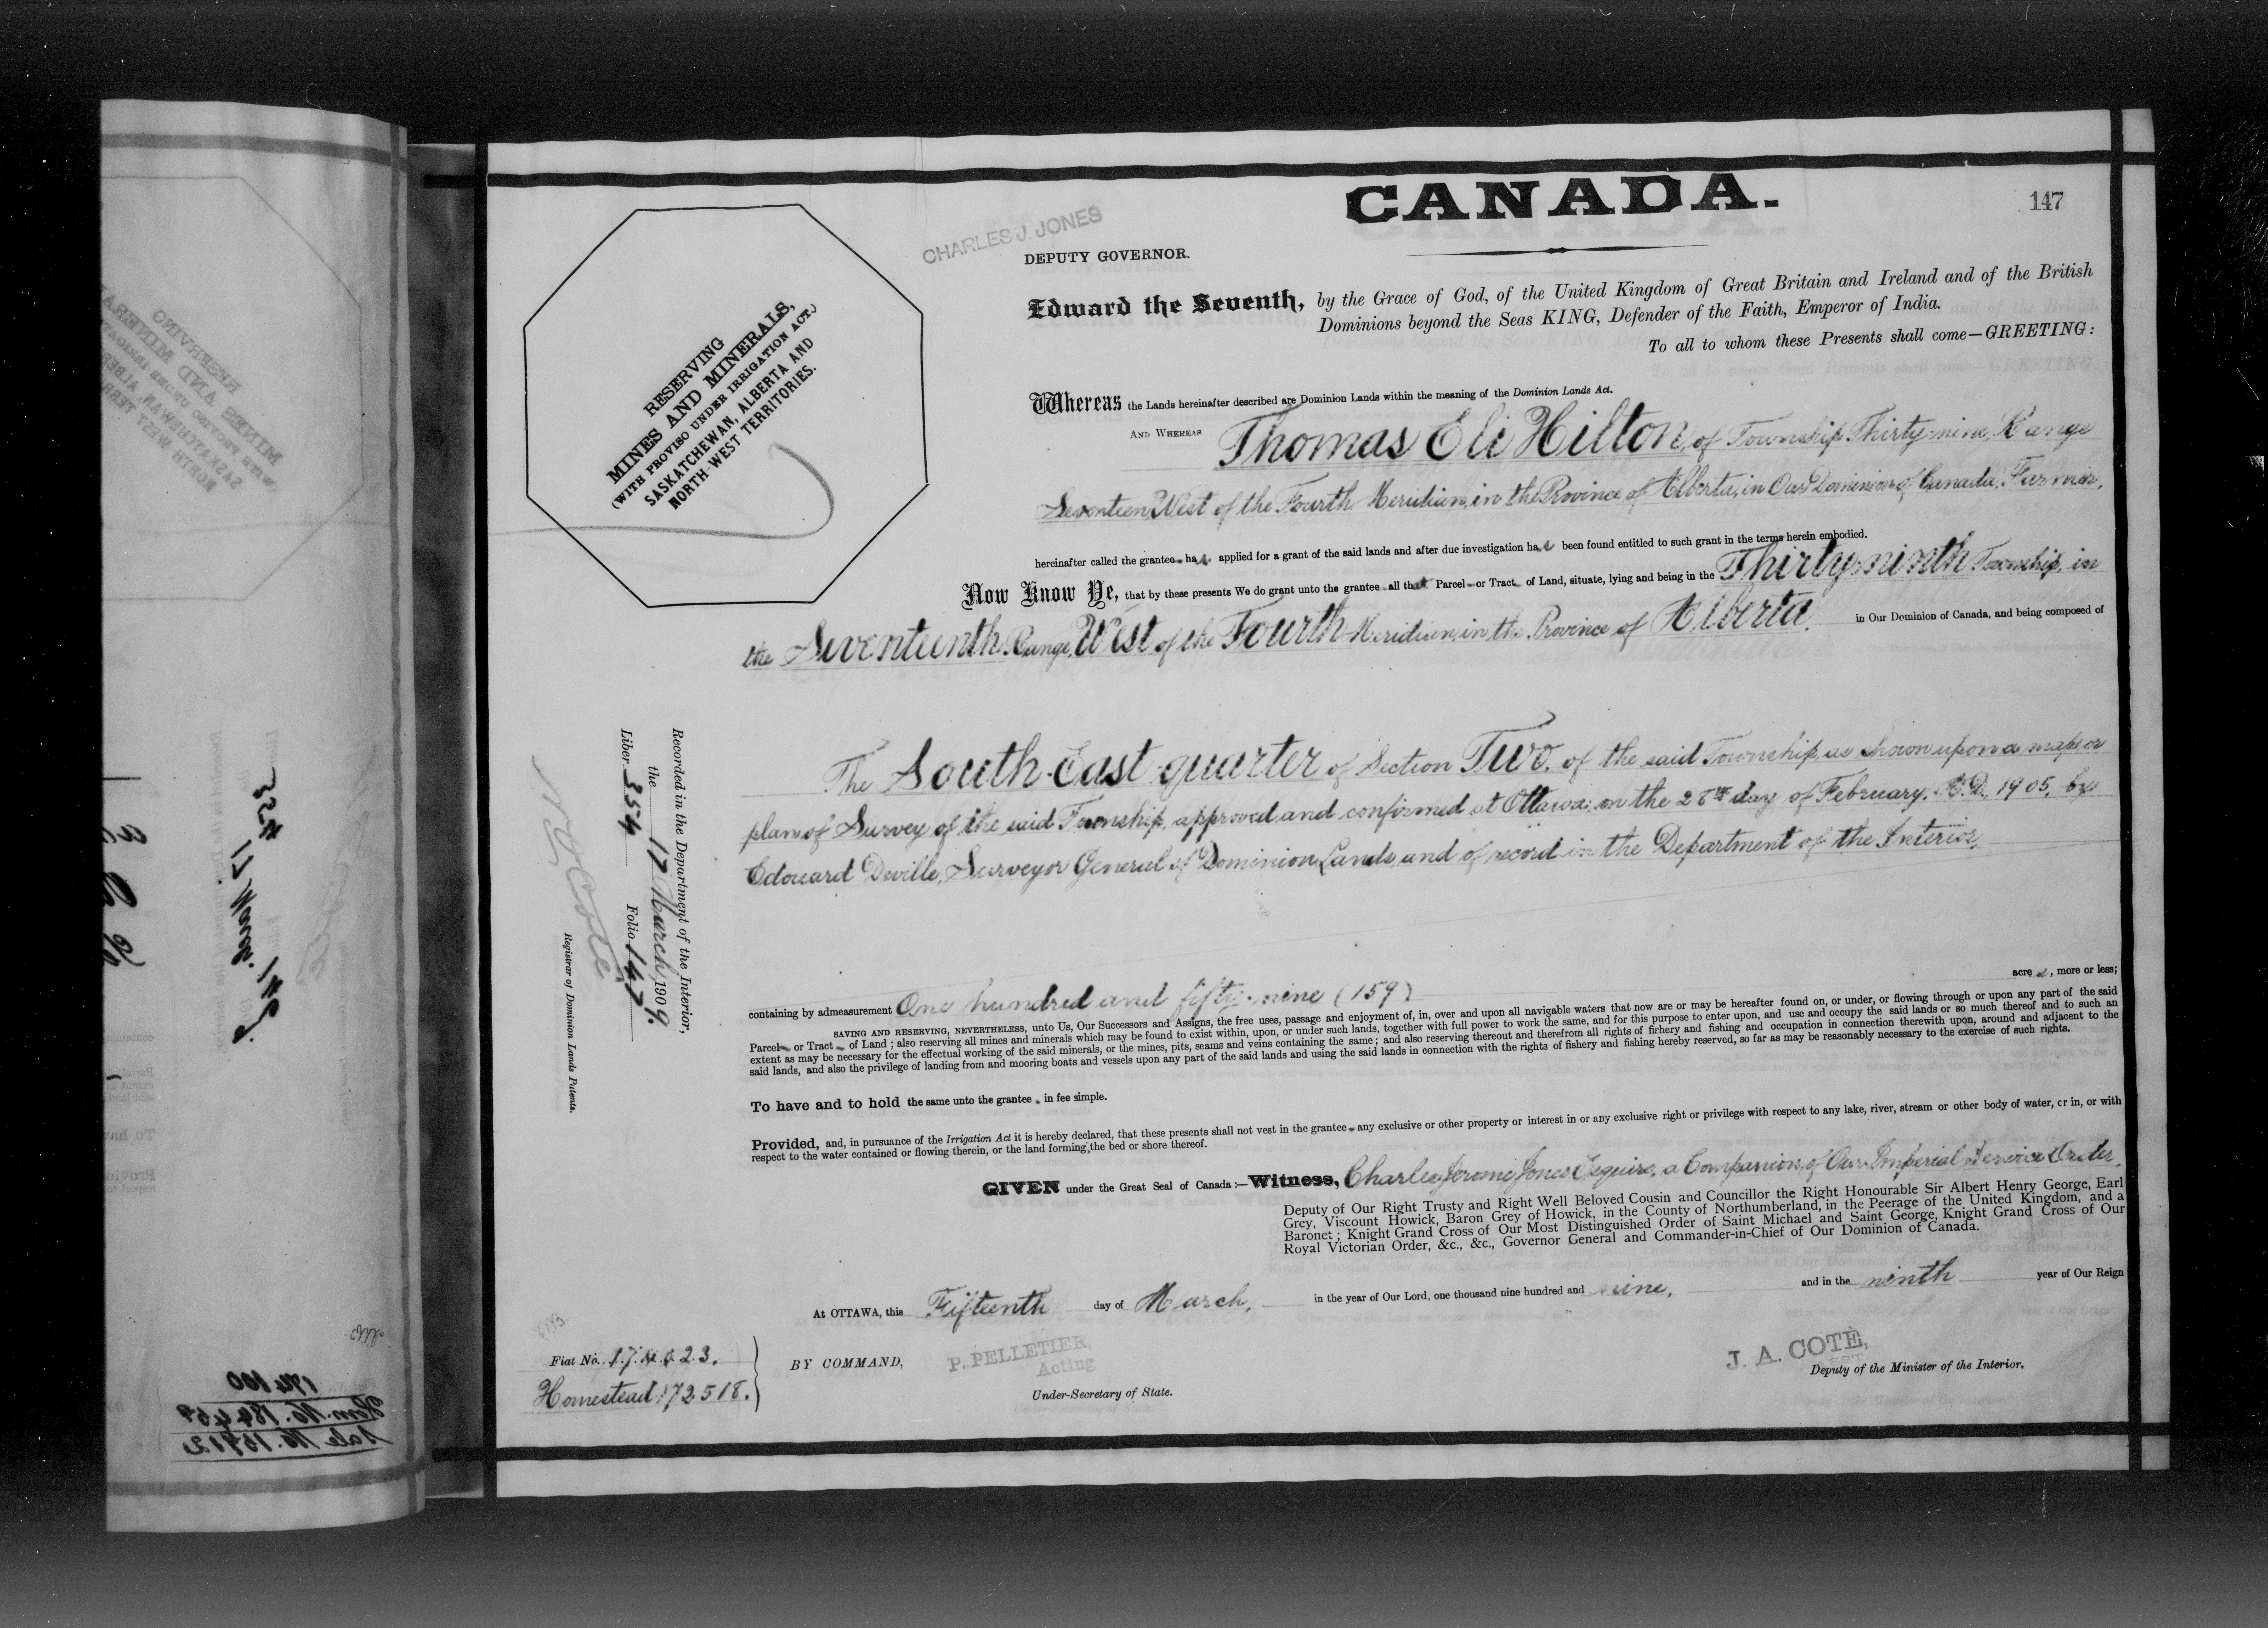 CANADA.
147
CHARLES J. JONES
DEPUTY GOVERNOR.
Edward the Seventh, by the Grace of God, of the United Kingdom of Great Britain and Ireland and of the British
Dominions beyond the Seas KING, Defender of the Faith, Emperor of India.
To all to whom these Presents shall come—GREETING:
RESERVING
MINES AND MINERALS,
(WITH PROVISO UNDER IRRIGATION ACT.)
SASKATCHEWAN, ALBERTA AND
NORTH-WEST TERRITORIES.
Whereas the Lands hereinafter described are Dominion Lands within the meaning of the Dominion Lands Act.
AND WHEREAS Thomas Eli Hilton, of Township Thirty-nine, Range
Seventeen West of the Fourth Meridian, in the Province of Alberta, in Our Dominion of Canada, Farmer,
hereinafter called the grantee has applied for a grant of the said lands and after due investigation has been found entitled to such grant in the terms herein embodied.
Now Know Ye, that by these presents We do grant unto the grantee all that Parcel or Tract of Land, situate, lying and being in the Thirty-ninth Township, in
the Seventeenth Range, West of the Fourth Meridian, in the Province of Alberta, in Our Dominion of Canada, and being composed of
The South-East quarter of Section Two, of the said Township, as shown upon a map or
plan of Survey of the said Township, approved and confirmed at Ottawa, on the 28th day of February, A.D. 1905, by
Edouard Deville, Surveyor General of Dominion Lands, and of record in the Department of the Interior,
containing by admeasurement One hundred and fifty-nine (159) acres, more or less;
SAVING AND RESERVING, NEVERTHELESS, unto Us, Our Successors and Assigns, the free uses, passage and enjoyment of, in, over and upon all navigable waters that now are or may be hereafter found on, or under, or flowing through or upon any part of the said
Parcel or Tract of Land; also reserving all mines and minerals which may be found to exist within, upon, or under such lands, together with full power to work the same, and for this purpose to enter upon, and use and occupy the said lands or so much thereof and to such an
extent as may be necessary for the effectual working of the said minerals, or the mines, pits, seams and veins containing the same; and also reserving thereout and therefrom all rights of fichery and fishing and occupation in connection therewith upon, around and adjacent to the
said lands, and also the privilege of landing from and mooring boats and vessels upon any part of the said lands and using the said lands in connection with the rights of fishery and fishing hereby reserved, so far as may be reasonably necessary to the exercise of such rights.
To have and to hold the same unto the grantee in fee simple.
Provided, and, in pursuance of the Irrigation Act it is hereby declared, that these presents shall not vest in the grantee any exclusive or other property or interest in or any exclusive right or privilege with respect to any lake, river, stream or other body of water, or in, or with
respect to the water contained or flowing therein, or the land forming the bed or shore thereof.
GIVEN under the Great Seal of Canada:—Witness, Charles Jerome Jones Esquire, a Companion of Our Imperial Service Order,
Deputy of Our Right Trusty and Right Well Beloved Cousin and Councillor the Right Honourable Sir Albert Henry George, Earl
Grey, Viscount Howick, Baron Grey of Howick, in the County of Northumberland, in the Peerage of the United Kingdom, and a
Baronet; Knight Grand Cross of Our Most Distinguished Order of Saint Michael and Saint George, Knight Grand Cross of Our
Royal Victorian Order, &c., &c., Governor General and Commander-in-Chief of Our Dominion of Canada.
At OTTAWA, this Fifteenth day of March, in the year of Our Lord, one thousand nine hundred and nine, and in the ninth year of Our Reign
BY COMMAND,
P. PELLETIER,
Acting
Under-Secretary of State.
J. A. COTE,
Deputy of the Minister of the Interior.
Recorded in the Department of the Interior,
the 17 March, 1909.
Liber 354 Folio 147
Registrar of Dominion Lands Patents.
Fiat No.
Homestead 172518.